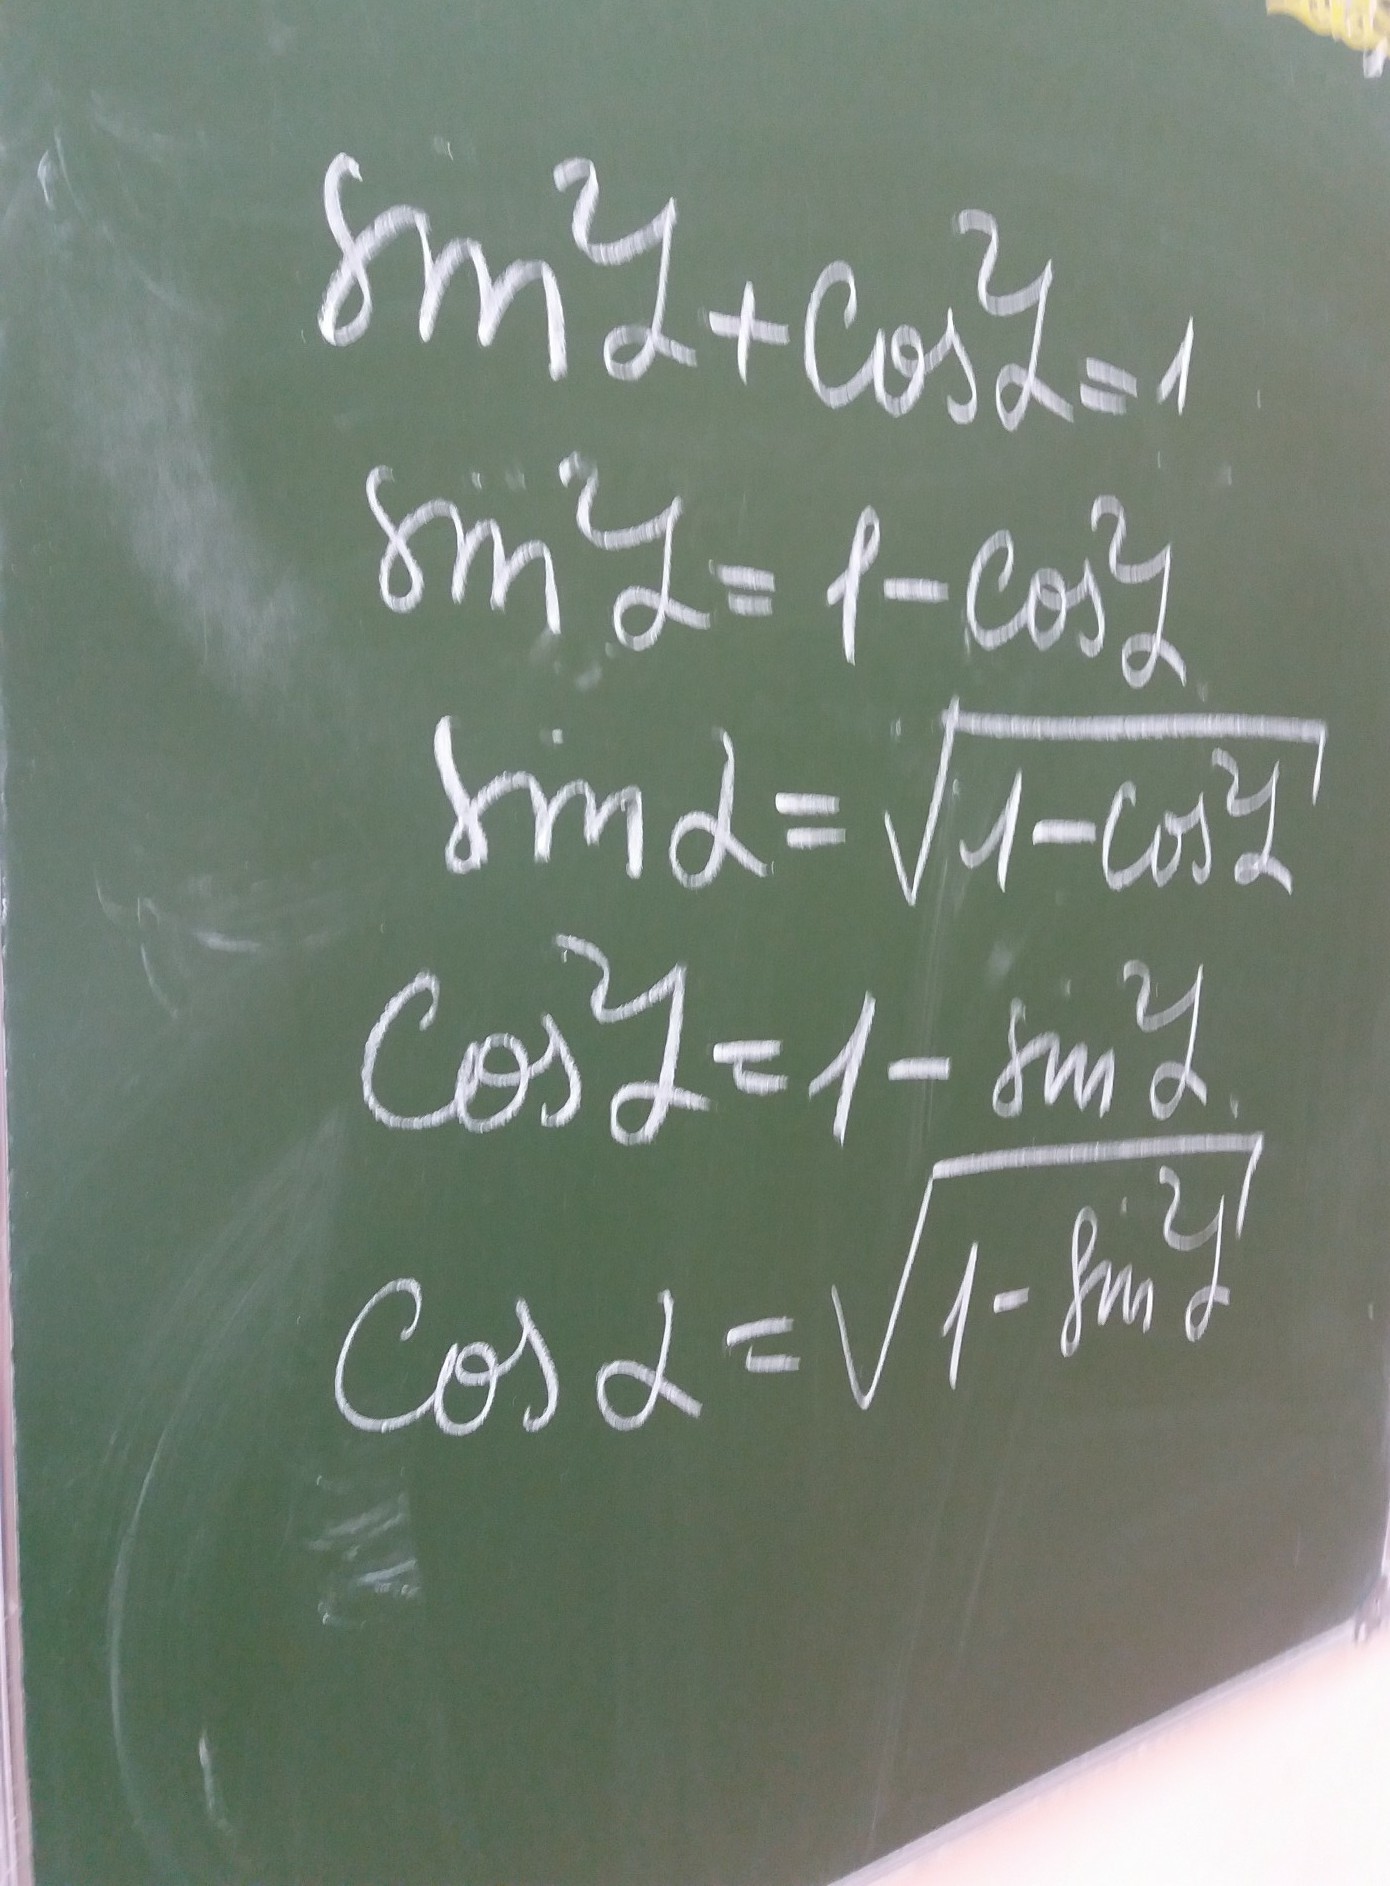 sin²α+cos²α=1
sin²α=1-cos²α
sinα=√1-cos²α
cos²α=1-sin²α
cosα=√1-sin²α